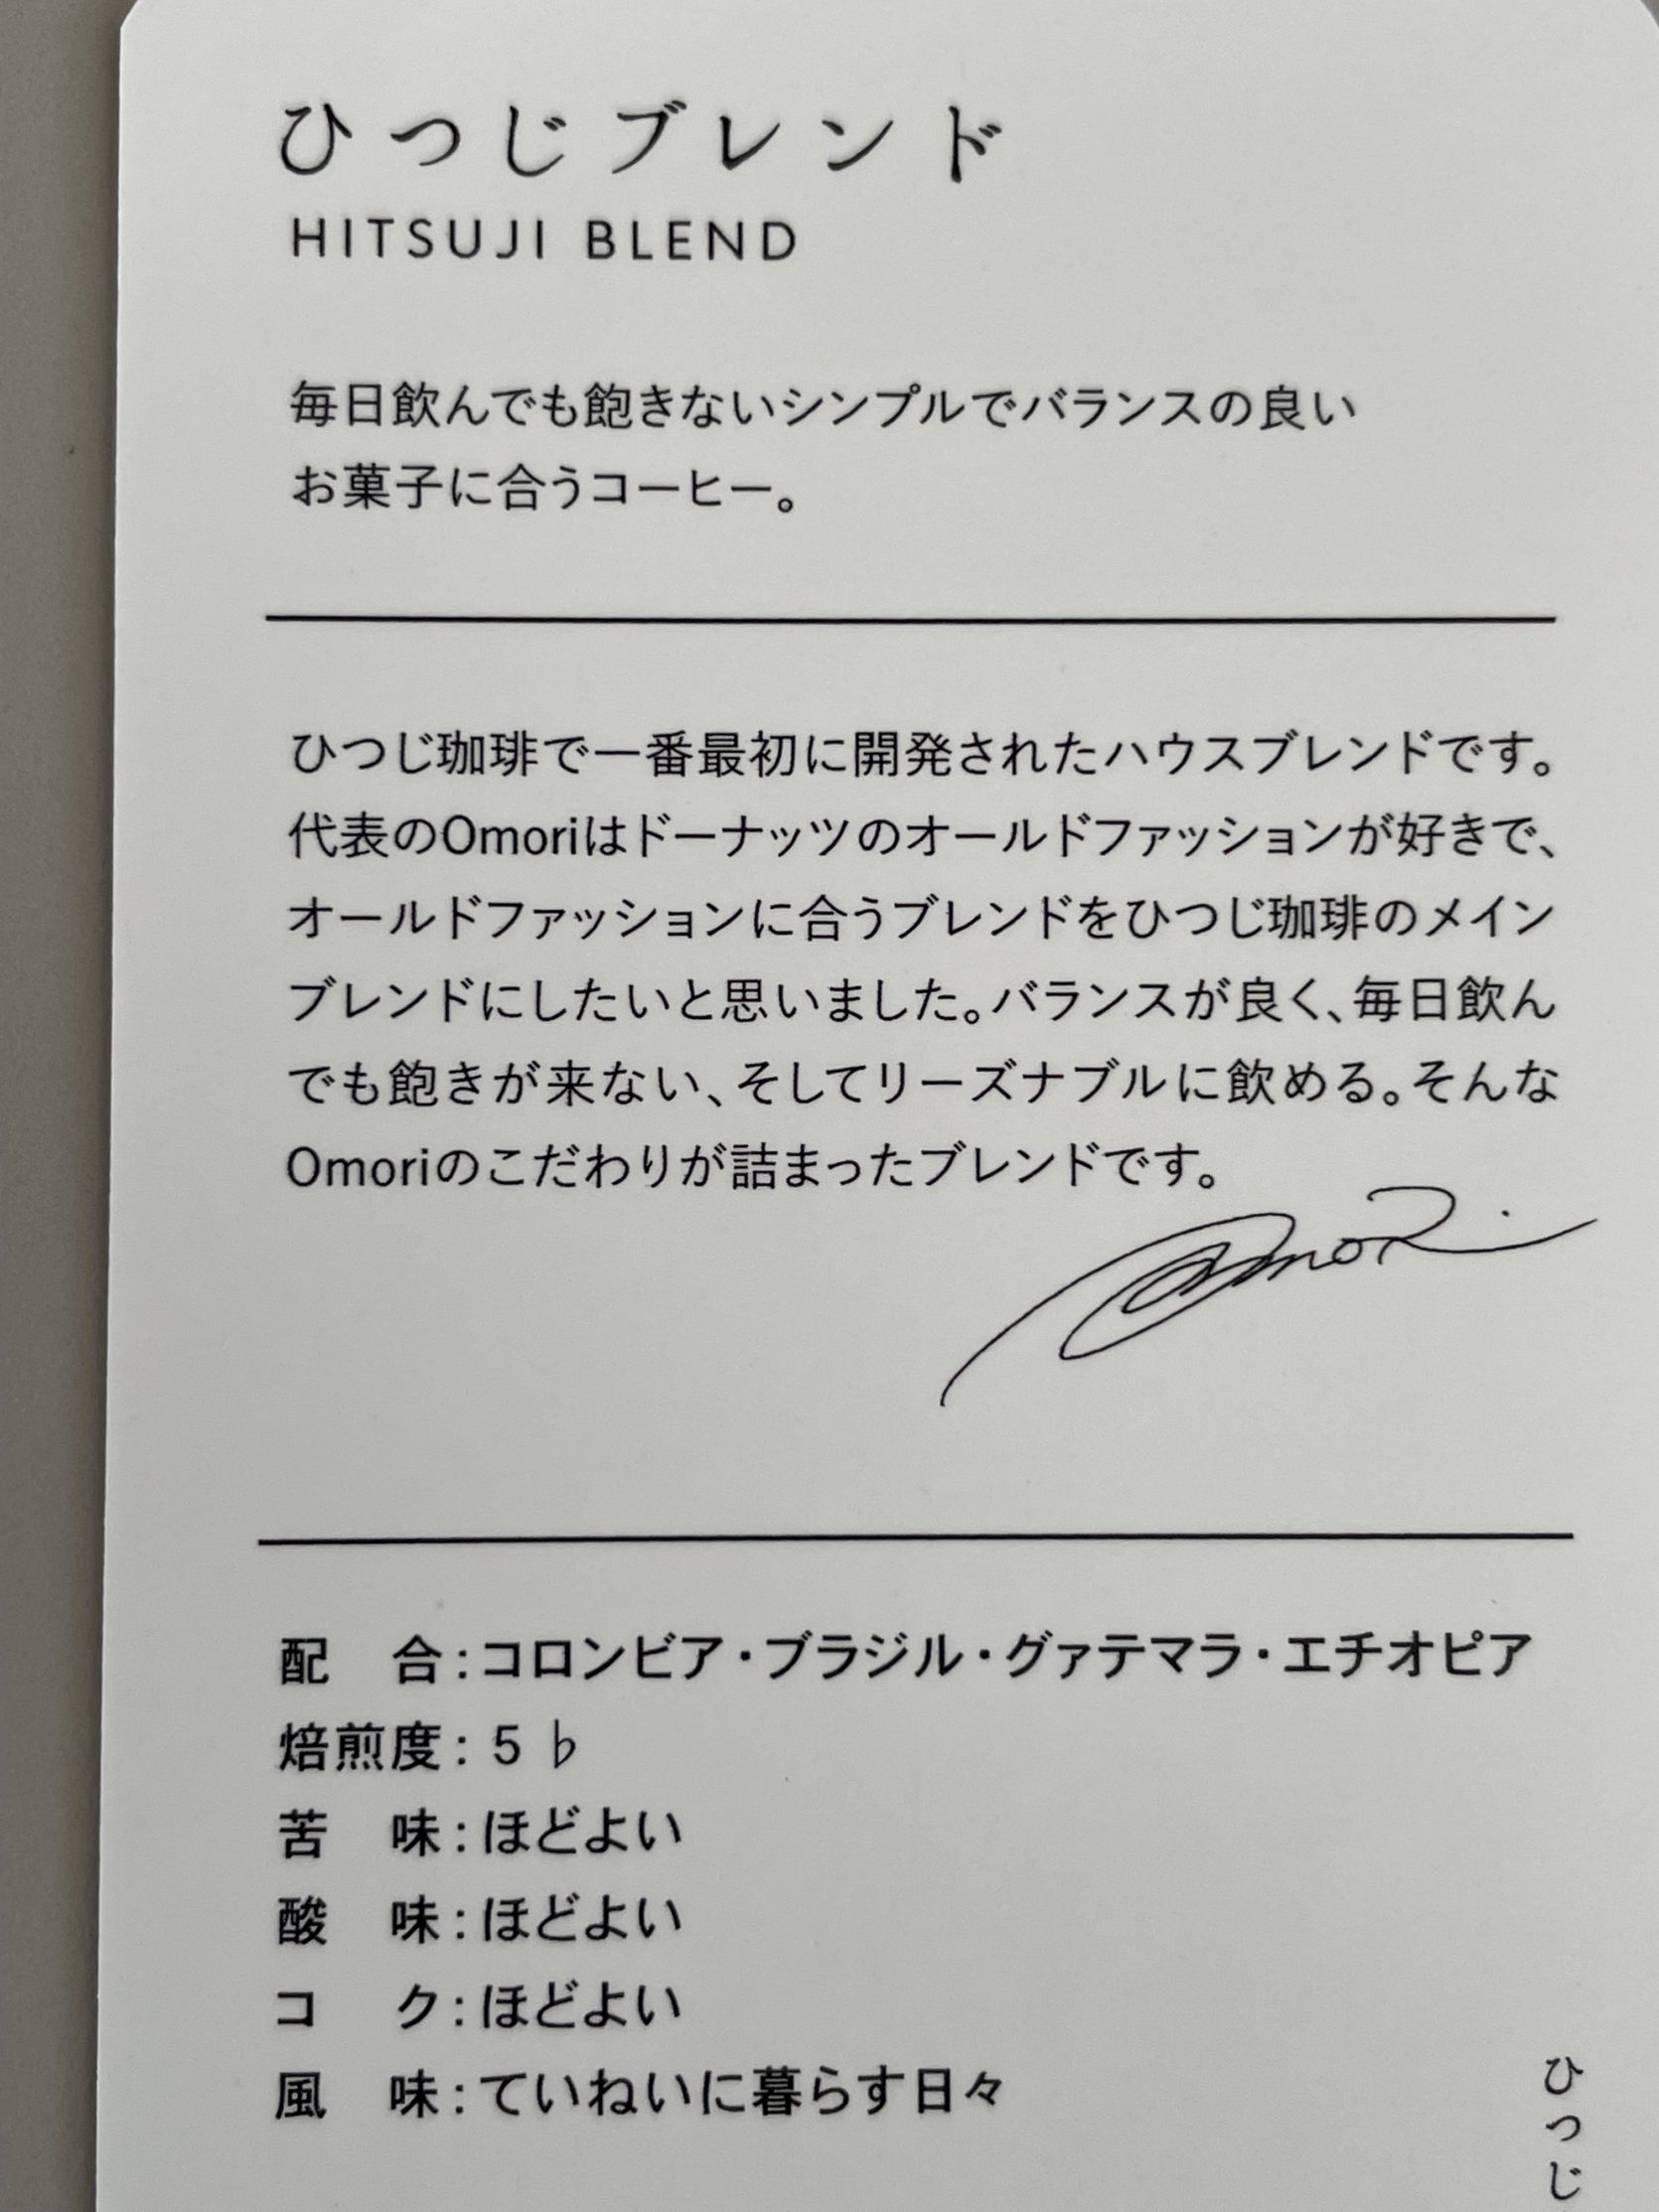 ひつじブレンド
HITSUJI BLEND
毎日飲んでも飽きないシンプルでバランスの良い
お菓子に合うコーヒー。
ひつじ珈琲で一番最初に開発されたハウスブレンドです。
代表のOmoriはドーナッツのオールドファッションが好きで、
オールドファッションに合うブレンドをひつじ珈琲のメイン
ブレンドにしたいと思いました。バランスが良く、毎日飲ん
でも飽きが来ない、そしてリーズナブルに飲める。そんな
Omoriのこだわりが詰まったブレンドです。
Omori
配　合：コロンビア・ブラジル・グァテマラ・エチオピア
焙煎度：５♭
苦　味：ほどよい
酸　味：ほどよい
コ　ク：ほどよい
風　味：ていねいに暮らす日々
ひつじ